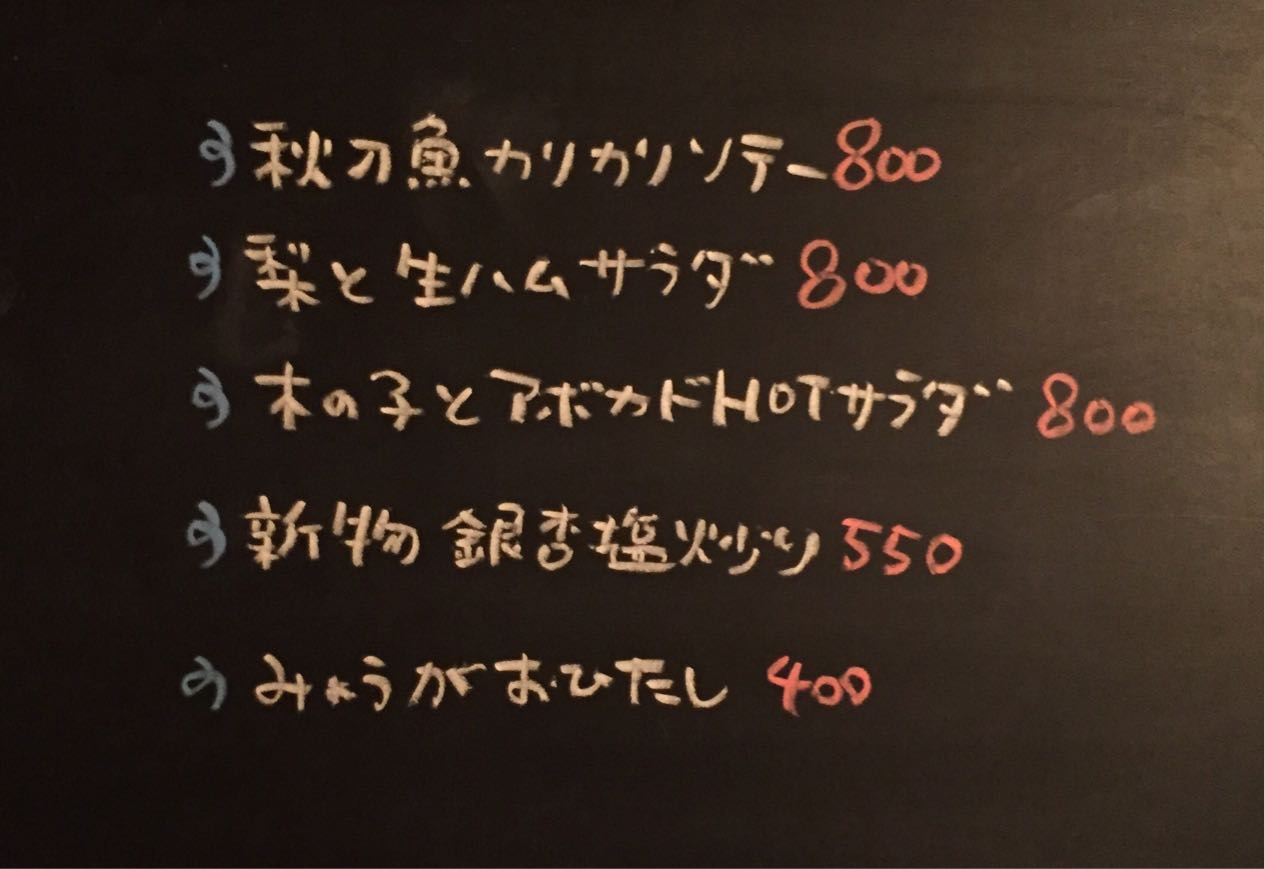 秋刀魚カリカリソテー 800
梨と生ハムサラダ 800
木の子とアボカドHOTサラダ 800
新物 銀杏塩炒り 550
みょうがおひたし 400